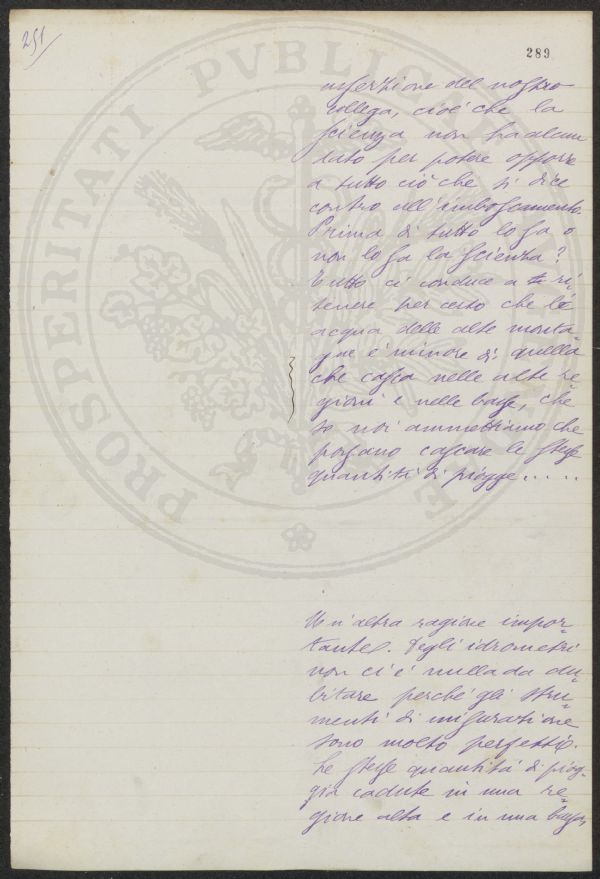 251
289
asserzione del nostro
collega, cioè che la
scienza non ha alcun
dato per potere opporre
a tutto ciò che si dice
contro all'imboscamento.
Prima di tutto lo sa o
non lo sa la scienza?
Tutto ci conduce a ri-
tenere per certo che l'
acqua delle alte monta
gne è minore di quella
che casca nelle alte re
gioni e nelle basse, che
se noi ammettiamo che
possano cascare le stesse
quantità di piogge.....
Un'altra ragione impor-
tante. Degli idrometri
non ci è nulla da du-
bitare perchè gli stru-
menti di misurazione
sono molto perfetti.
Le stesse quantità di piog-
gia cadute in una re-
gione alta e in una bassa,
PROSPERITATI PVBLICAE